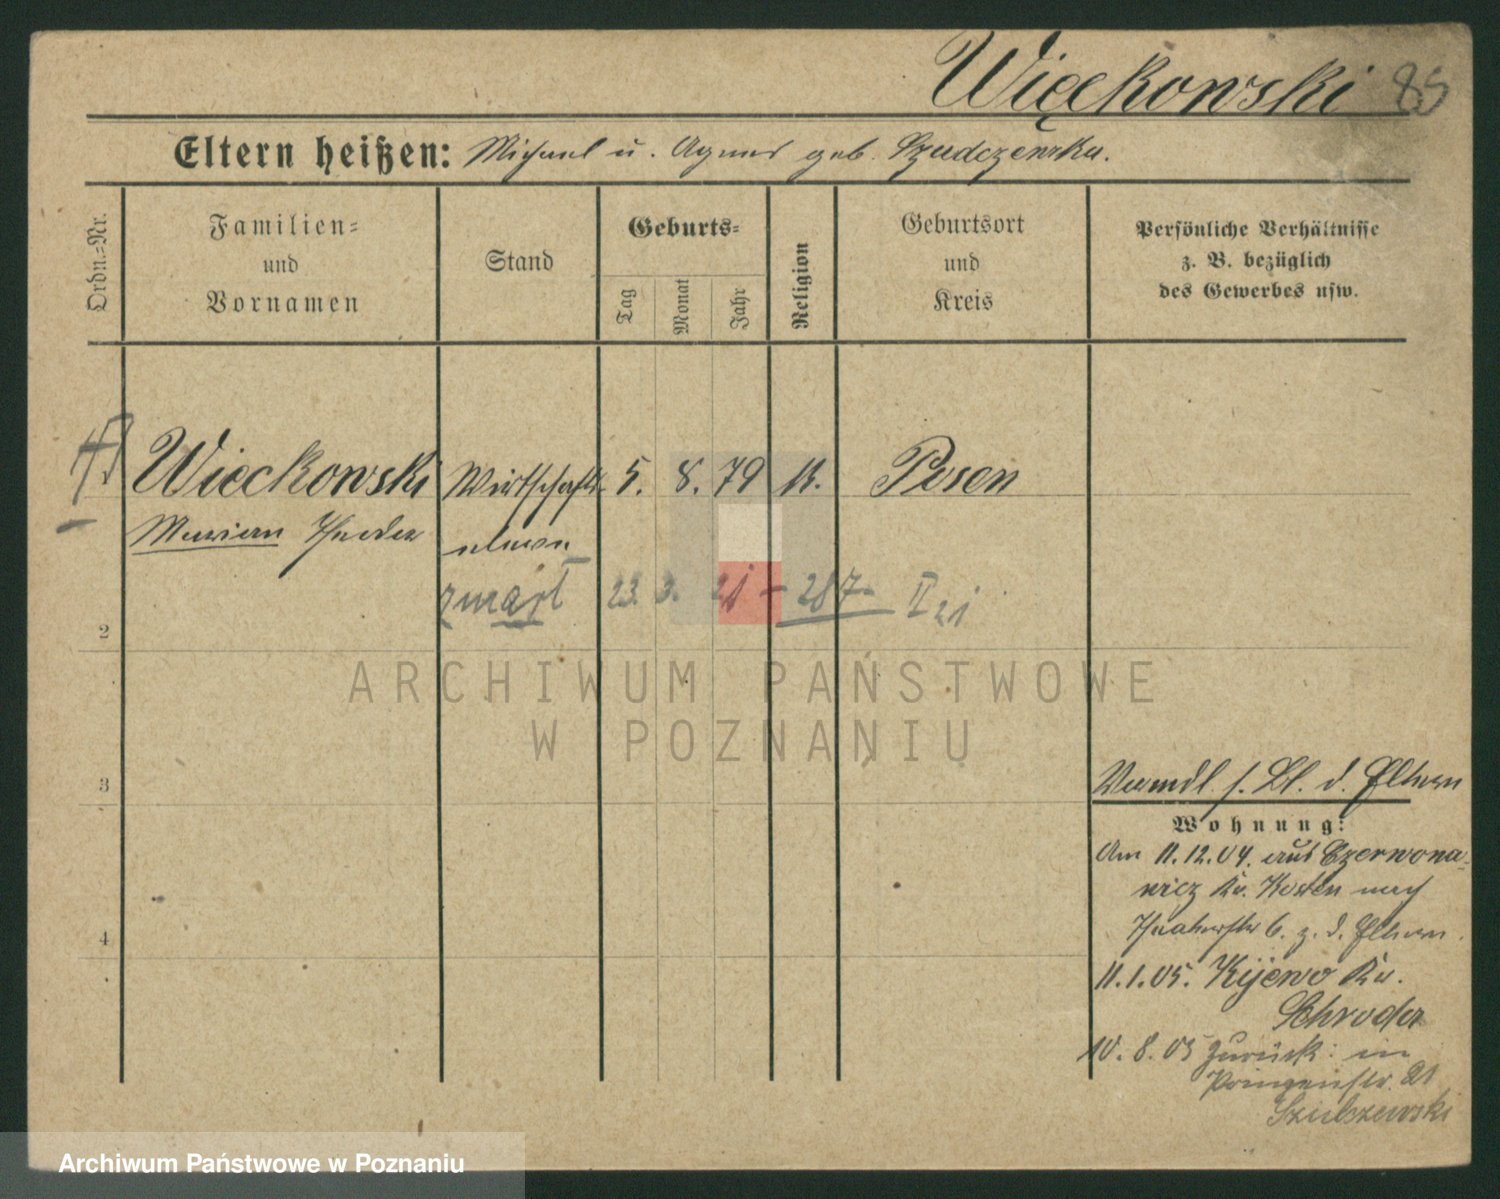 Więckowski 85
Eltern heißen: Michael u. Agnes geb. Szudczewska.
Ordn.=Nr.
Familien=
und
Vornamen
Stand
Geburts=
Tag
Monat
Jahr
Religion
Geburtsort
und
Kreis
Persönliche Verhältnisse
z. B. bezüglich
des Gewerbes usw.
Więckowski Wirtschafts- 5. 8. 79 K. Posen
Marian Theodor
zmarł 23. 3. 21 - 287. II 21
2
ARCHIWUM PAŃSTWOWE
W POZNANIU
3
4
s. Bl. d. Eltern
Wohnung:
Am 11.12.04. aus Czerwona-
Kr. Kosten nach
Theaterstr 6. z. d. Eltern.
11.1.05. Kijewo Kr.
Schroda
10.8.05 zurück: in
Prinzenstr. 21
Szulczewski
Archiwum Państwowe w Poznaniu